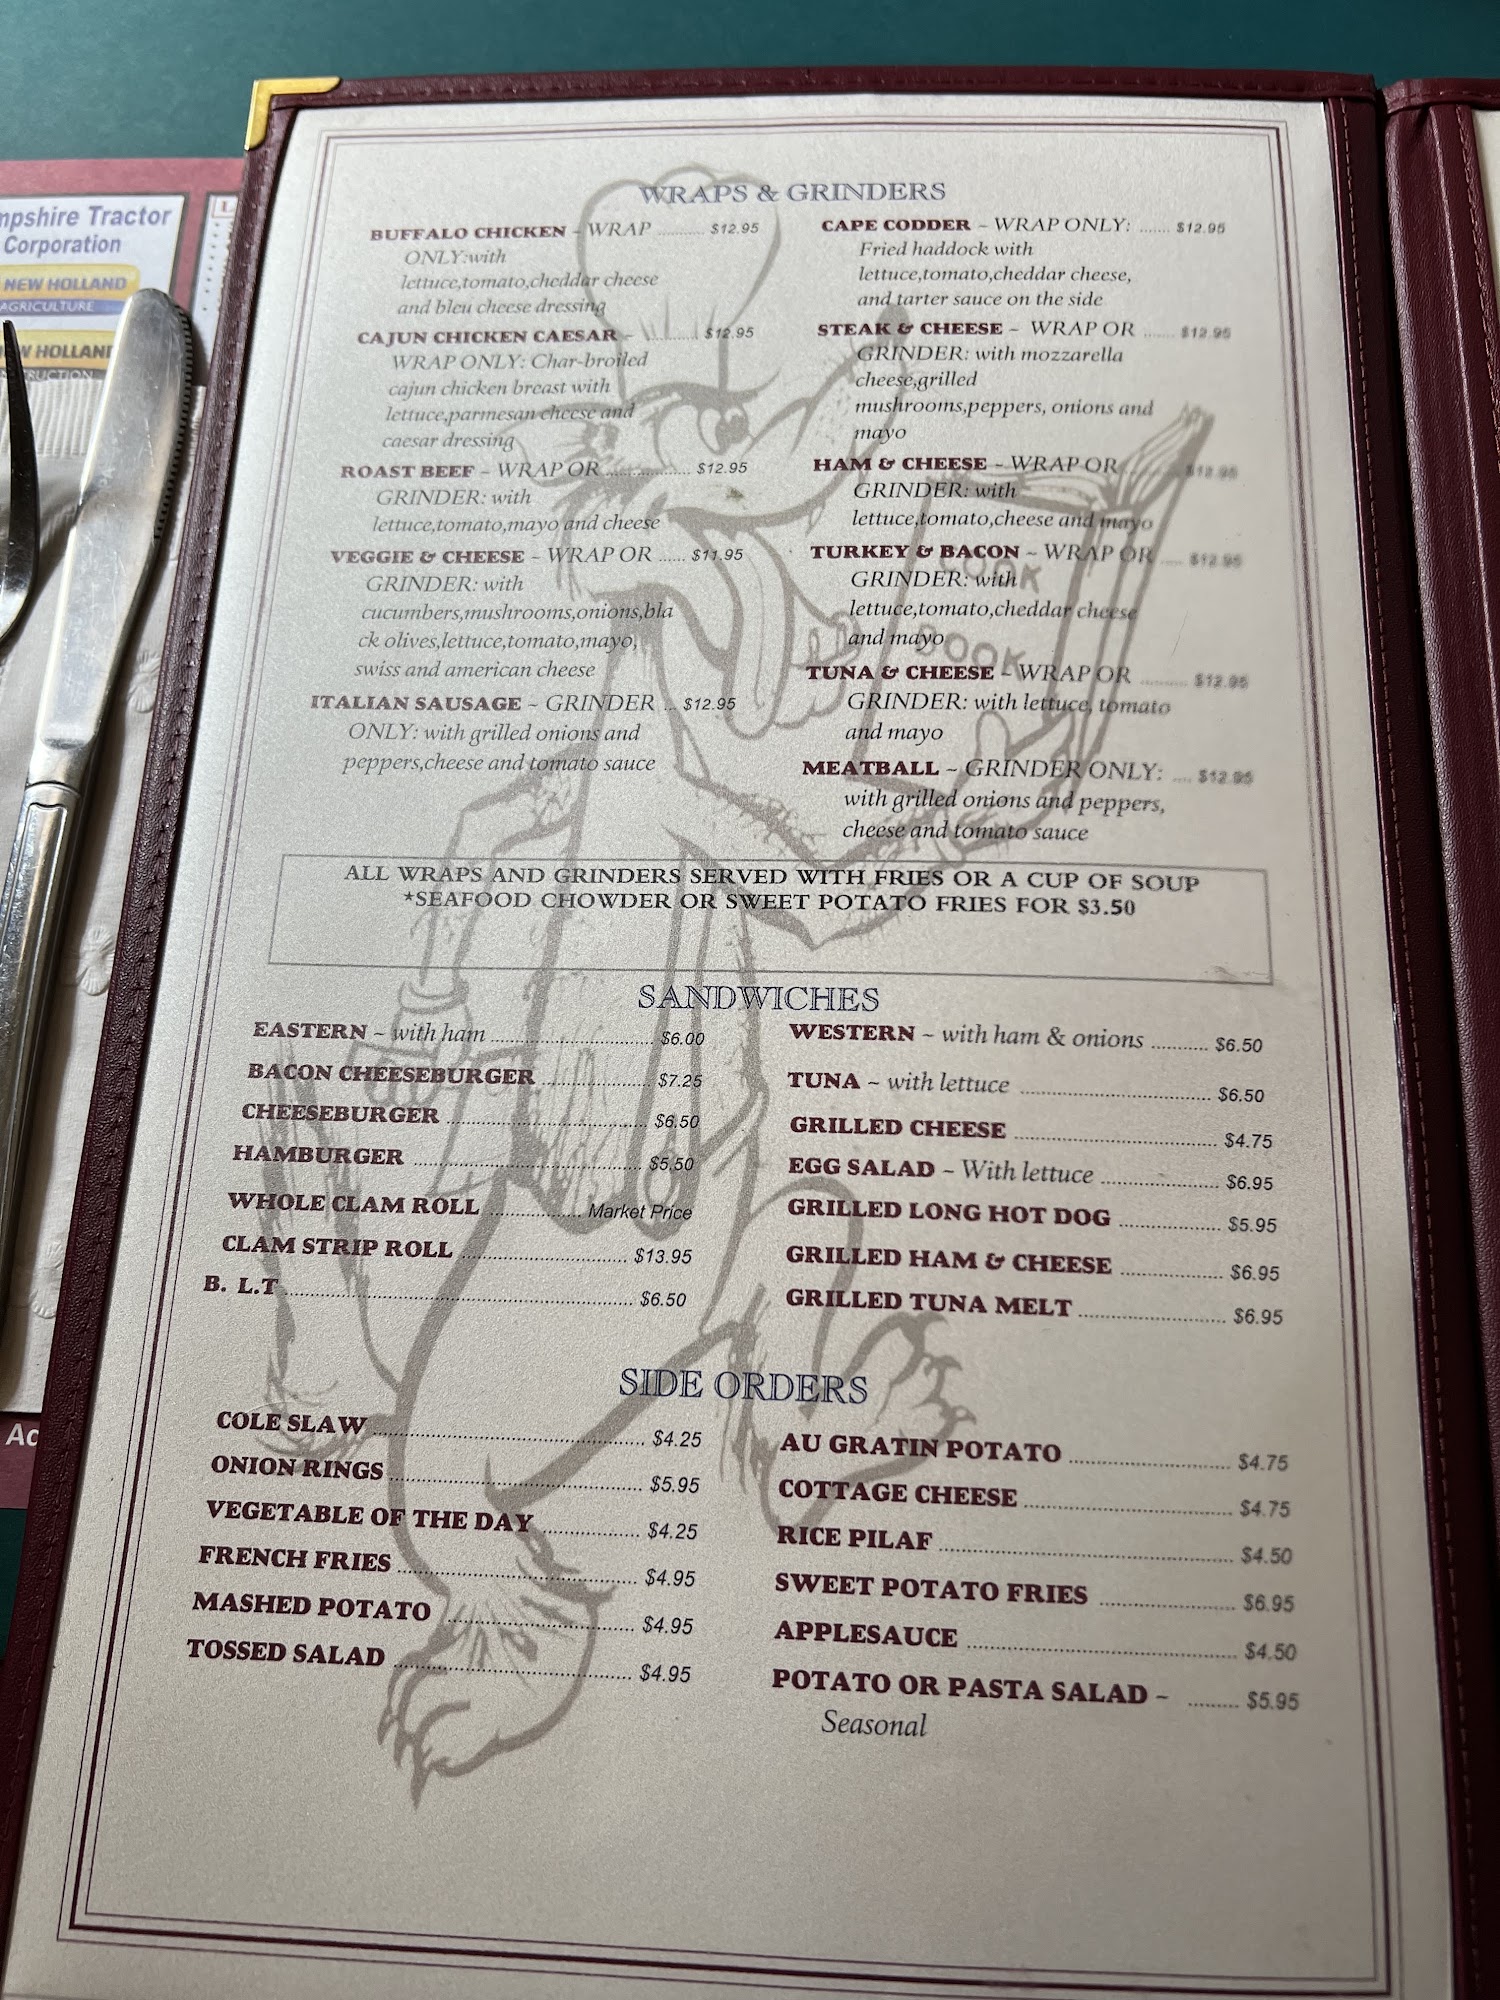 mpshire Tractor
Corporation
NEW HOLLAND
AGRICULTURE
W HOLLAN
Ac
WRAPS & GRINDERS
BUFFALO CHICKEN ~ WRAP .......... $12.95
ONLY:with
lettuce,tomato,cheddar cheese
and bleu cheese dressing
CAJUN CHICKEN CAESAR ~ ............ $12.95
WRAP ONLY: Char-broiled
cajun chicken breast with
lettuce,parmesan cheese and
caesar dressing
ROAST BEEF ~ WRAP OR .................. $12.95
GRINDER: with
lettuce,tomato,mayo and cheese
VEGGIE & CHEESE ~ WRAP OR ...... $11.95
GRINDER: with
cucumbers,mushrooms,onions,bla
ck olives,lettuce,tomato,mayo,
swiss and american cheese
ITALIAN SAUSAGE ~ GRINDER .. $12.95
ONLY: with grilled onions and
peppers,cheese and tomato sauce
CAPE CODDER ~ WRAP ONLY: ...... $12.95
Fried haddock with
lettuce,tomato,cheddar cheese,
and tarter sauce on the side
STEAK & CHEESE ~ WRAP OR ...... $12.95
GRINDER: with mozzarella
cheese,grilled
mushrooms,peppers, onions and
mayo
HAM & CHEESE ~ WRAP OR .......... $12.95
GRINDER: with
lettuce,tomato,cheese and mayo
TURKEY & BACON ~ WRAP OR .... $12.95
GRINDER: with
lettuce,tomato,cheddar cheese
and mayo
TUNA & CHEESE ~ WRAP OR ......... $12.95
GRINDER: with lettuce, tomato
and mayo
MEATBALL ~ GRINDER ONLY: .... $12.95
with grilled onions and peppers,
cheese and tomato sauce
COOK
BOOK
ALL WRAPS AND GRINDERS SERVED WITH FRIES OR A CUP OF SOUP
*SEAFOOD CHOWDER OR SWEET POTATO FRIES FOR $3.50
SANDWICHES
EASTERN ~ with ham .............................. $6.00
BACON CHEESEBURGER .................... $7.25
CHEESEBURGER ..................................... $6.50
HAMBURGER .......................................... $5.50
WHOLE CLAM ROLL ................. Market Price
CLAM STRIP ROLL ............................... $13.95
B. L.T ................................................................ $6.50
WESTERN ~ with ham & onions .......... $6.50
TUNA ~ with lettuce .................................. $6.50
GRILLED CHEESE ..................................... $4.75
EGG SALAD ~ With lettuce ..................... $6.95
GRILLED LONG HOT DOG ................... $5.95
GRILLED HAM & CHEESE ................... $6.95
GRILLED TUNA MELT .......................... $6.95
SIDE ORDERS
COLE SLAW ................................................. $4.25
ONION RINGS .............................................. $5.95
VEGETABLE OF THE DAY .................. $4.25
FRENCH FRIES ........................................... $4.95
MASHED POTATO .................................. $4.95
TOSSED SALAD .......................................... $4.95
AU GRATIN POTATO ............................. $4.75
COTTAGE CHEESE ..................................... $4.75
RICE PILAF ..................................................... $4.50
SWEET POTATO FRIES ........................ $6.95
APPLESAUCE ................................................ $4.50
POTATO OR PASTA SALAD ~ ......... $5.95
Seasonal